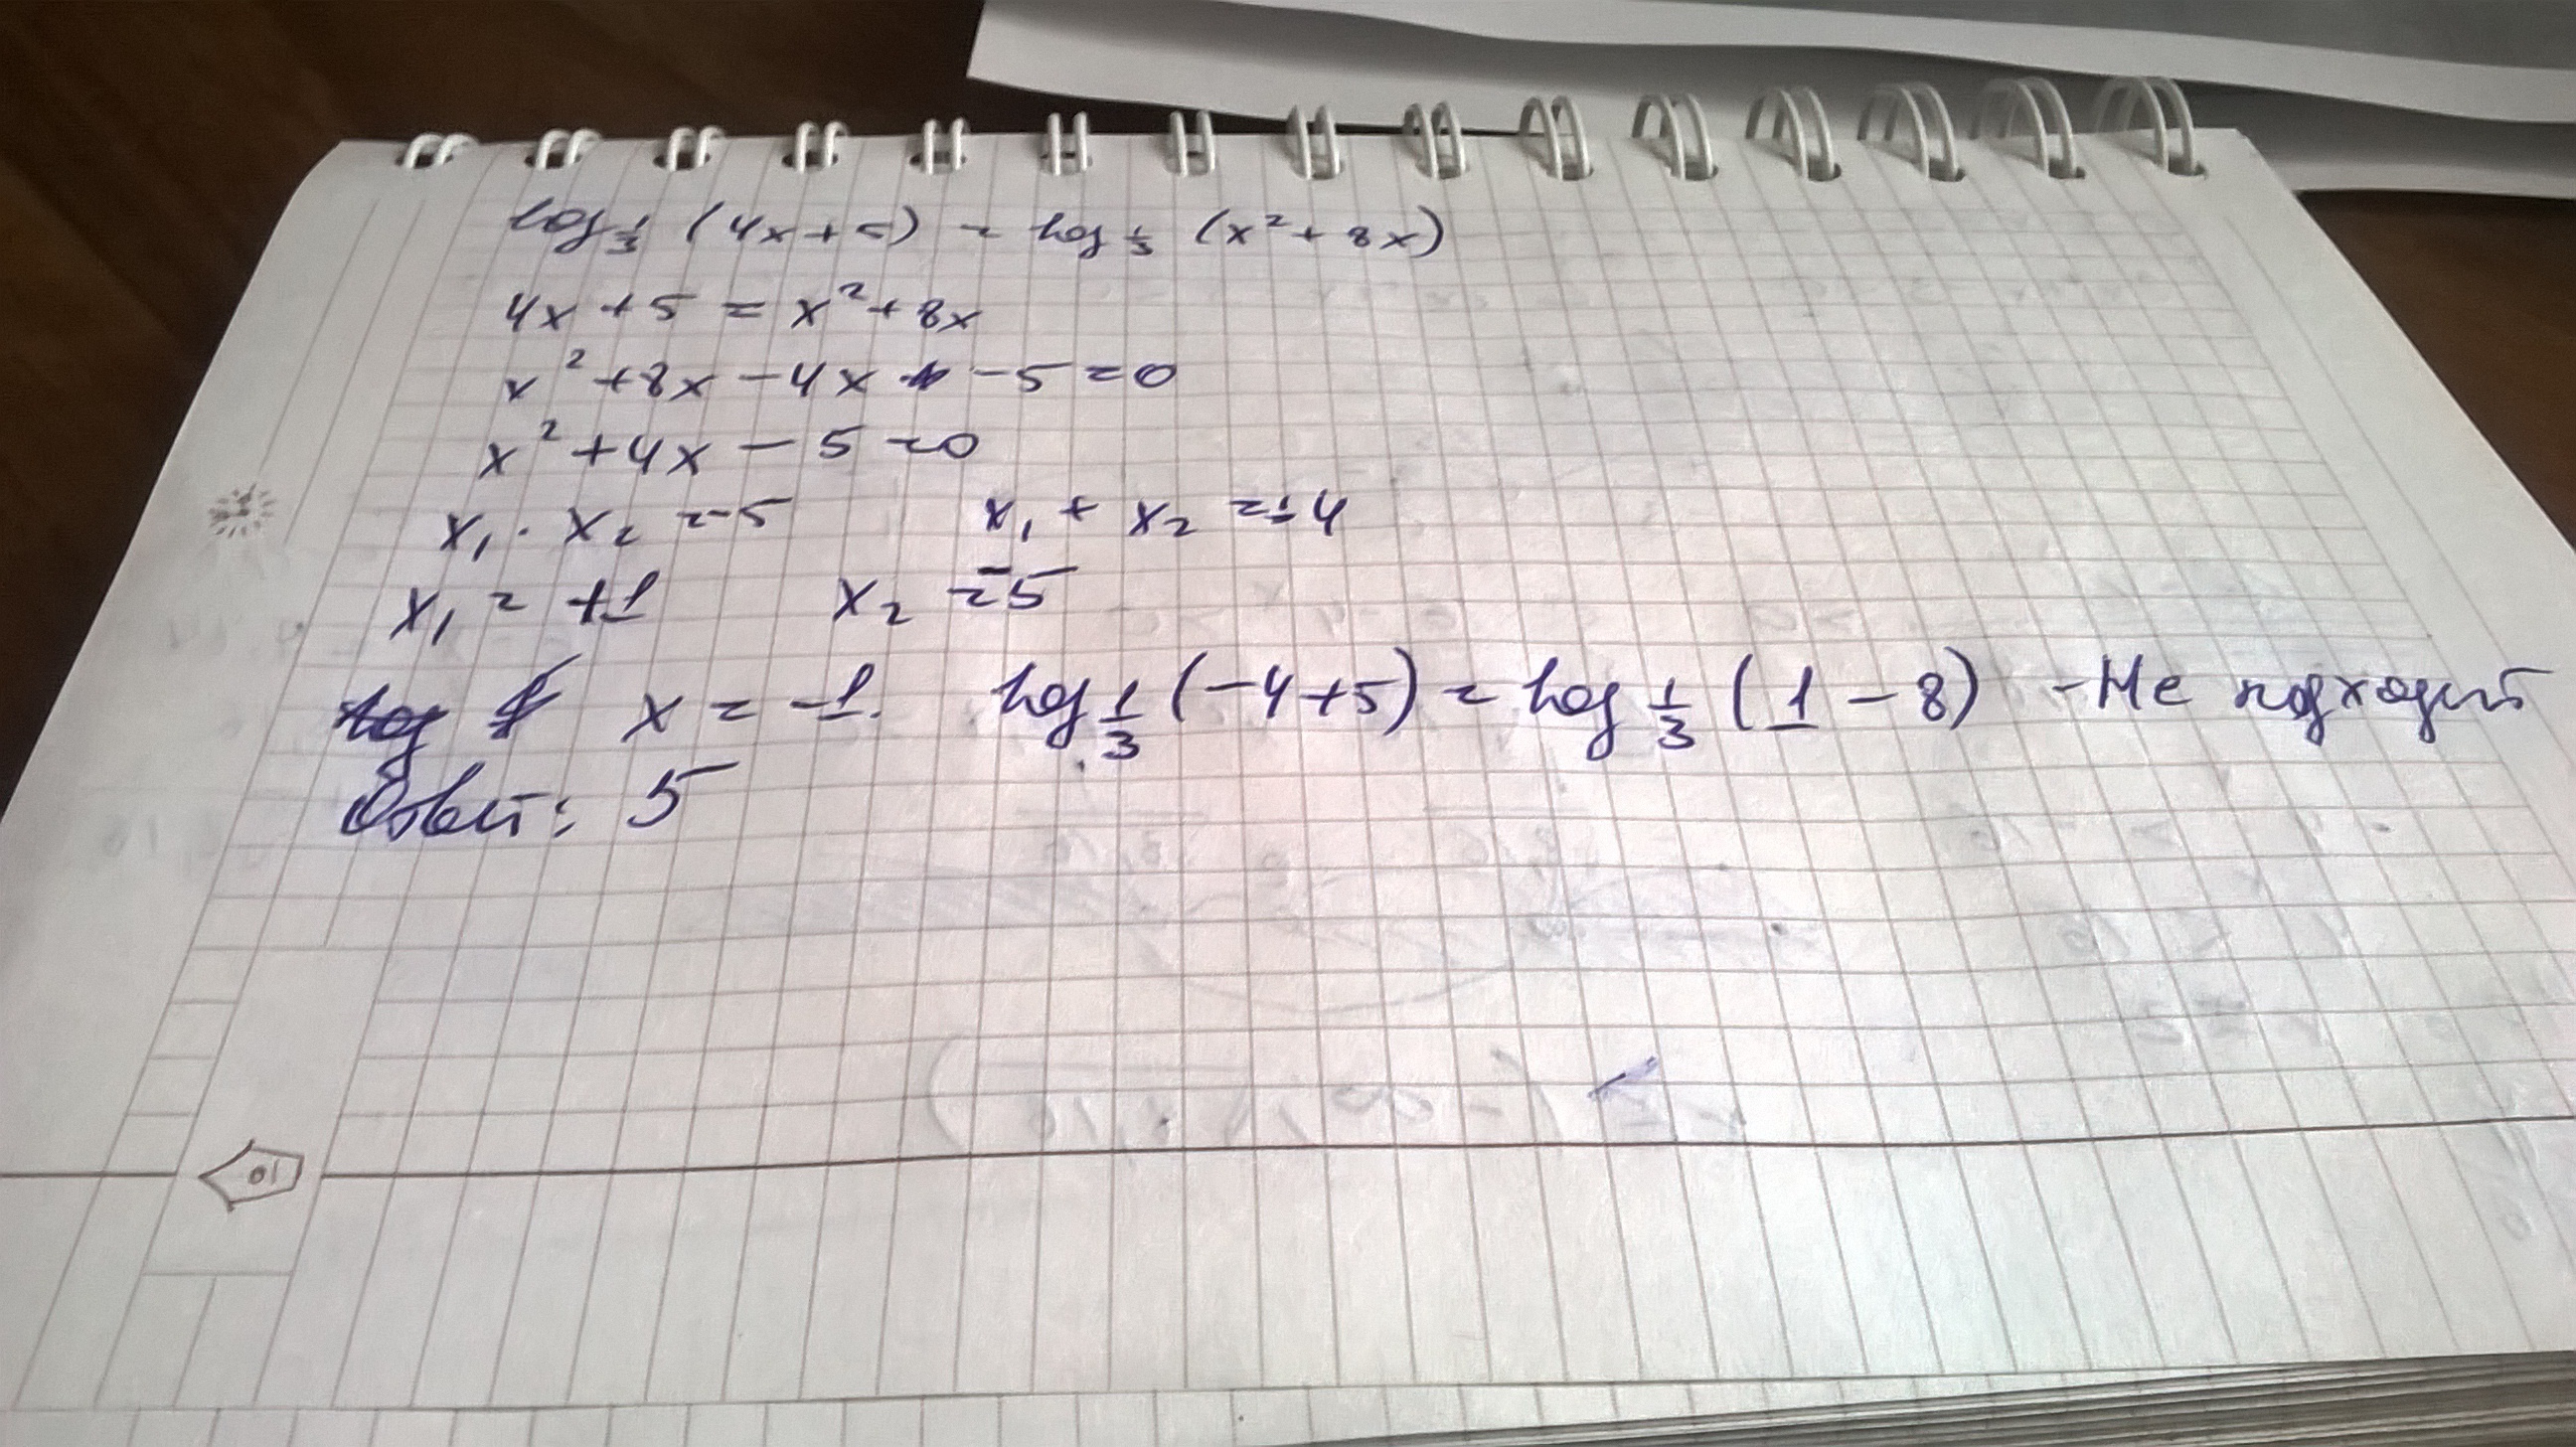 log 1/3 (4x+5) = log 1/3 (x² + 8x)
4x + 5 = x² + 8x
x² + 8x - 4x - 5 = 0
x² + 4x - 5 = 0
x₁ · x₂ = -5 x₁ + x₂ = -4
x₁ = +1 x₂ = -5
x = -1. log 1/3 (-4+5) = log 1/3 (1 - 8) - Не подходит
Ответ: 5